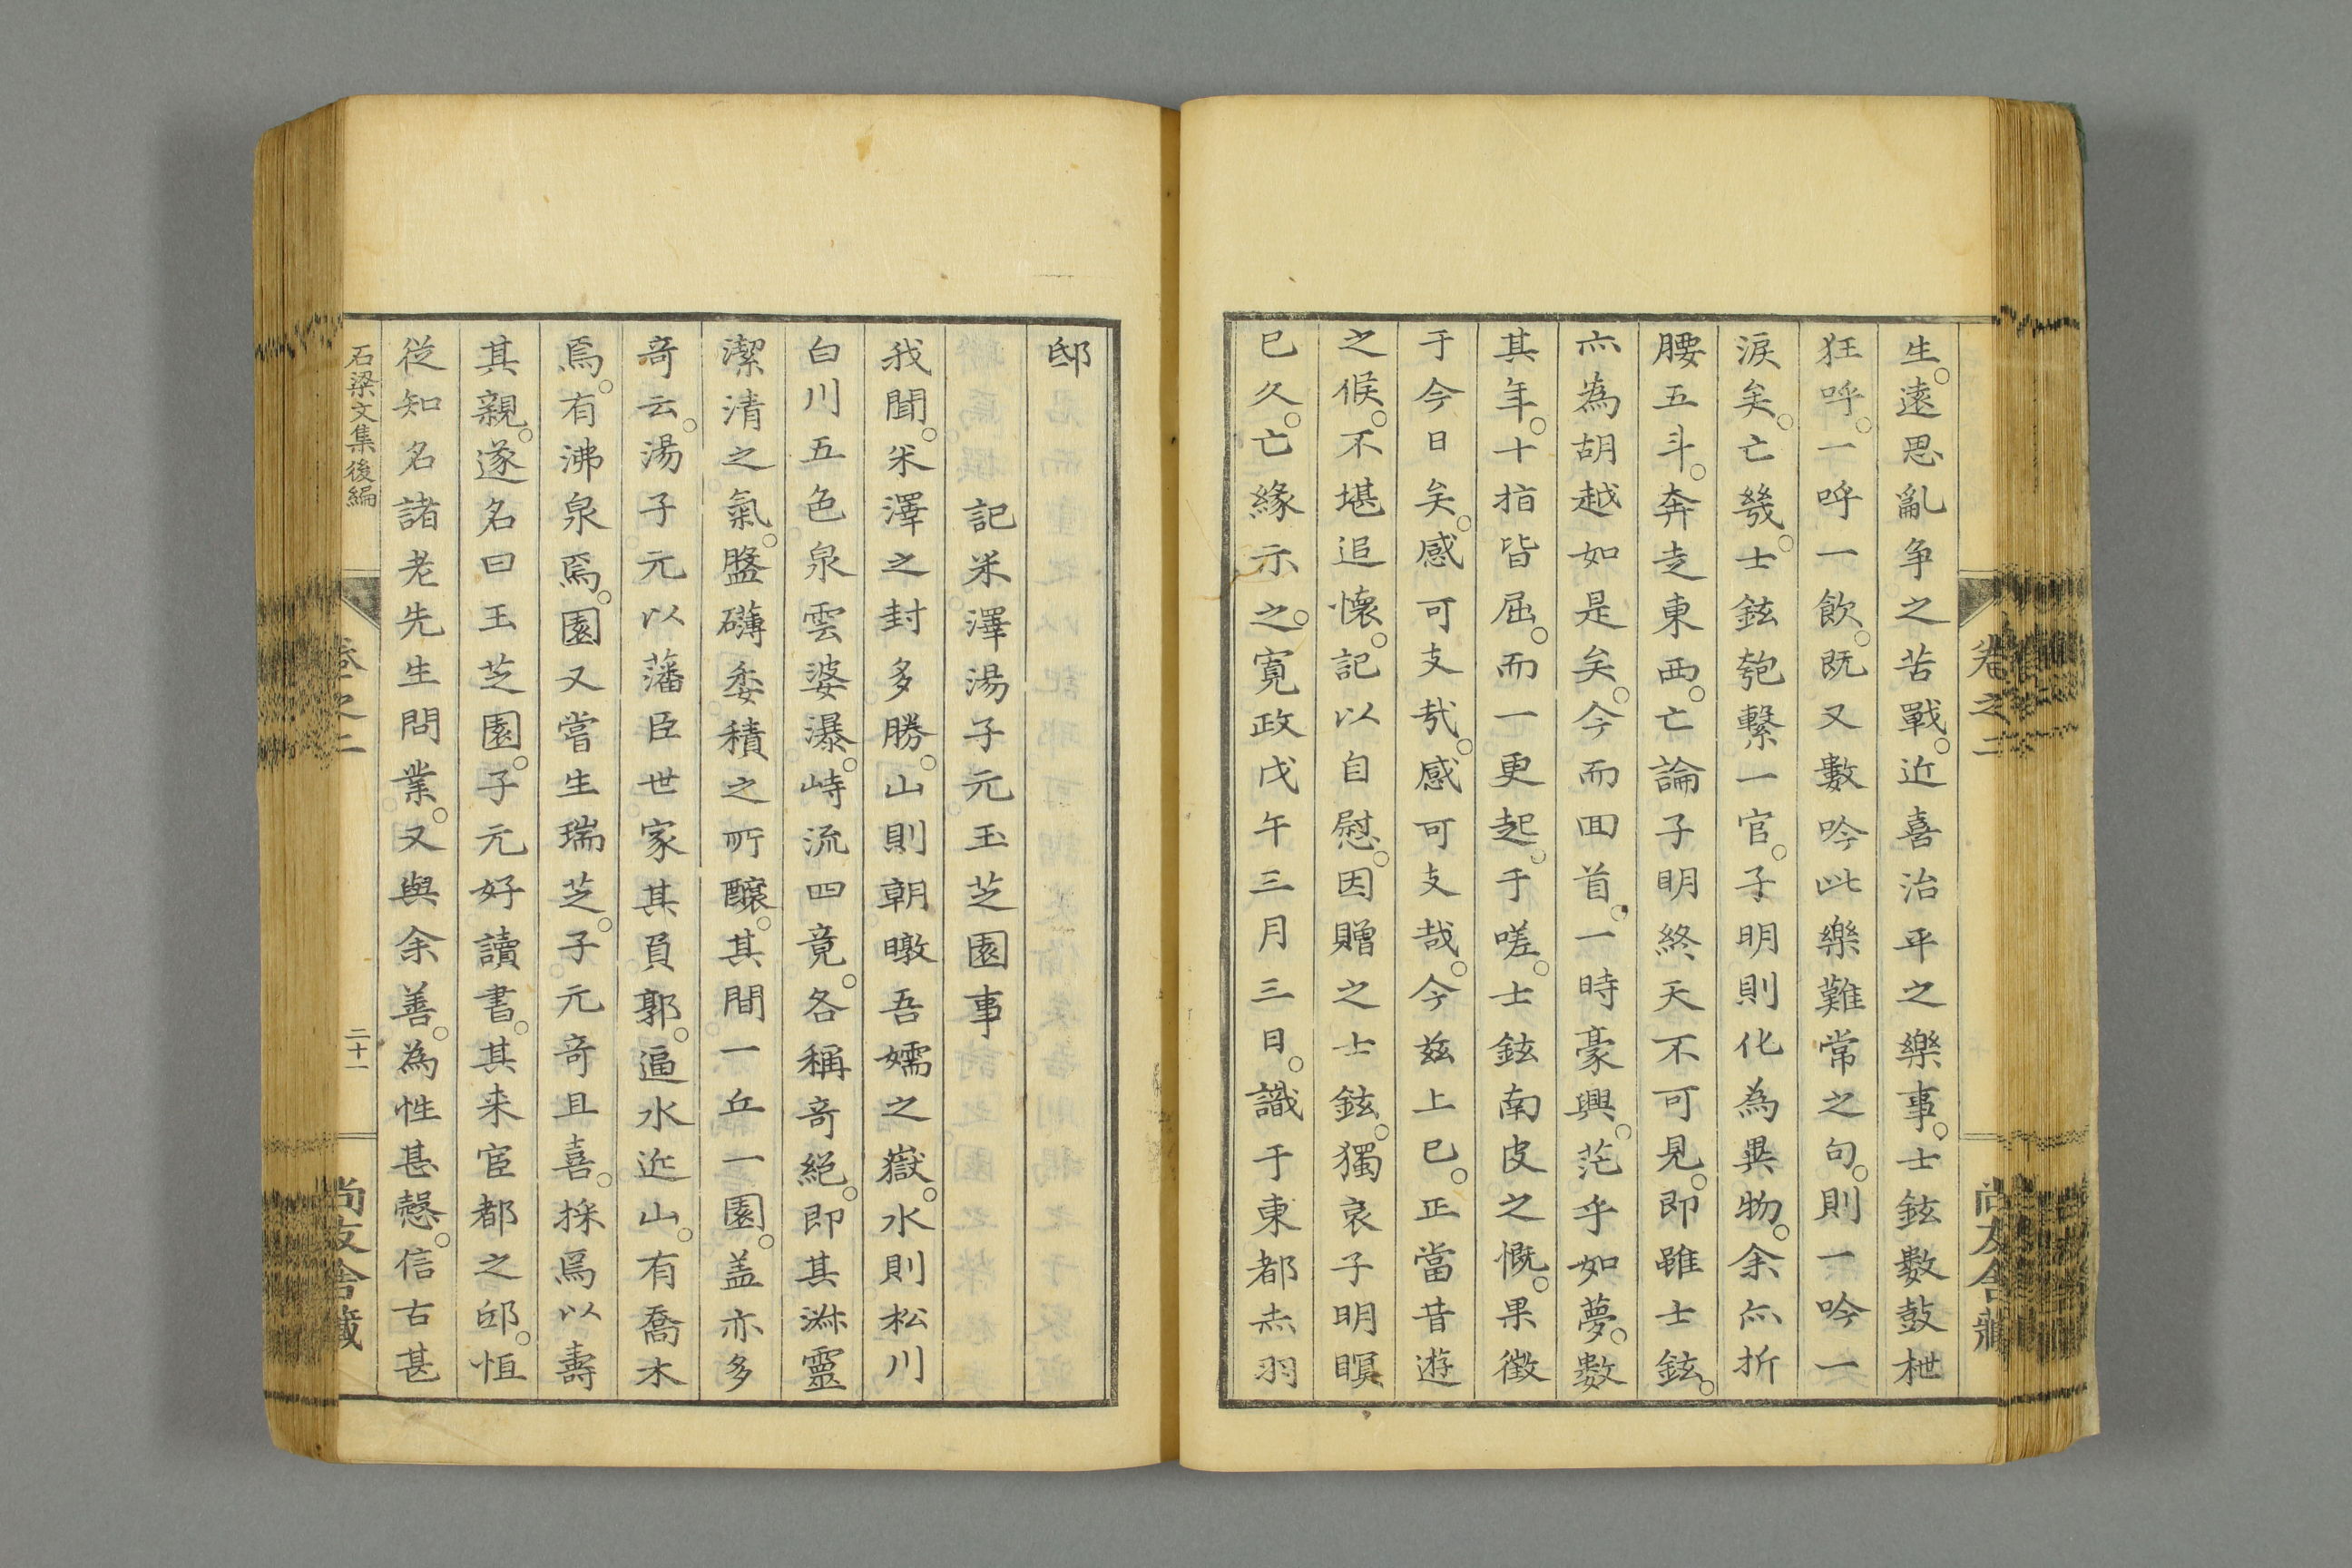 生。遠思亂争之苦戰。近喜治平之樂事。士鉉數鼓枻
狂呼。一呼一飲。既又數吟此樂難常之句。則一吟一
淚矣。亡幾。士鉉匏繋一官。子明則化為異物。余亦折
腰五斗。奔走東西。亡論子明終天不可見。即雖士鉉。
亦為胡越如是矣。今而回首。一時豪興。茫乎如夢。數
其年。十指皆屈。而一更起。于嗟。士鉉南皮之慨。果徵
于今日矣。感可支哉。感可支哉。今茲上巳。正當昔遊
之候。不堪追懷。記以自慰。因贈之士鉉。獨哀子明瞑
已久。亡緣示之。寛政戊午三月三日。識于東都赤羽
卷之二
尚友舍藏
邸
記米澤湯子元玉芝園事
我聞。米澤之封多勝。山則朝暾吾嬬之嶽。水則松川
白川五色泉雲婆瀑。峙流四竟。各稱奇絕。即其淋靈
潔清之氣。盤礴委積之所釀。其間一丘一園。盖亦多
奇云。湯子元以藩臣世家其負郭。逼水近山。有喬木
焉。有沸泉焉。園又嘗生瑞芝。子元奇且喜。採焉以壽
其親。遂名曰玉芝園。子元好讀書。其来宦都之邸。恒
從知名諸老先生問業。又與余善。為性甚愨。信古甚
石梁文集後編
卷之二
二十一
尚友舍藏